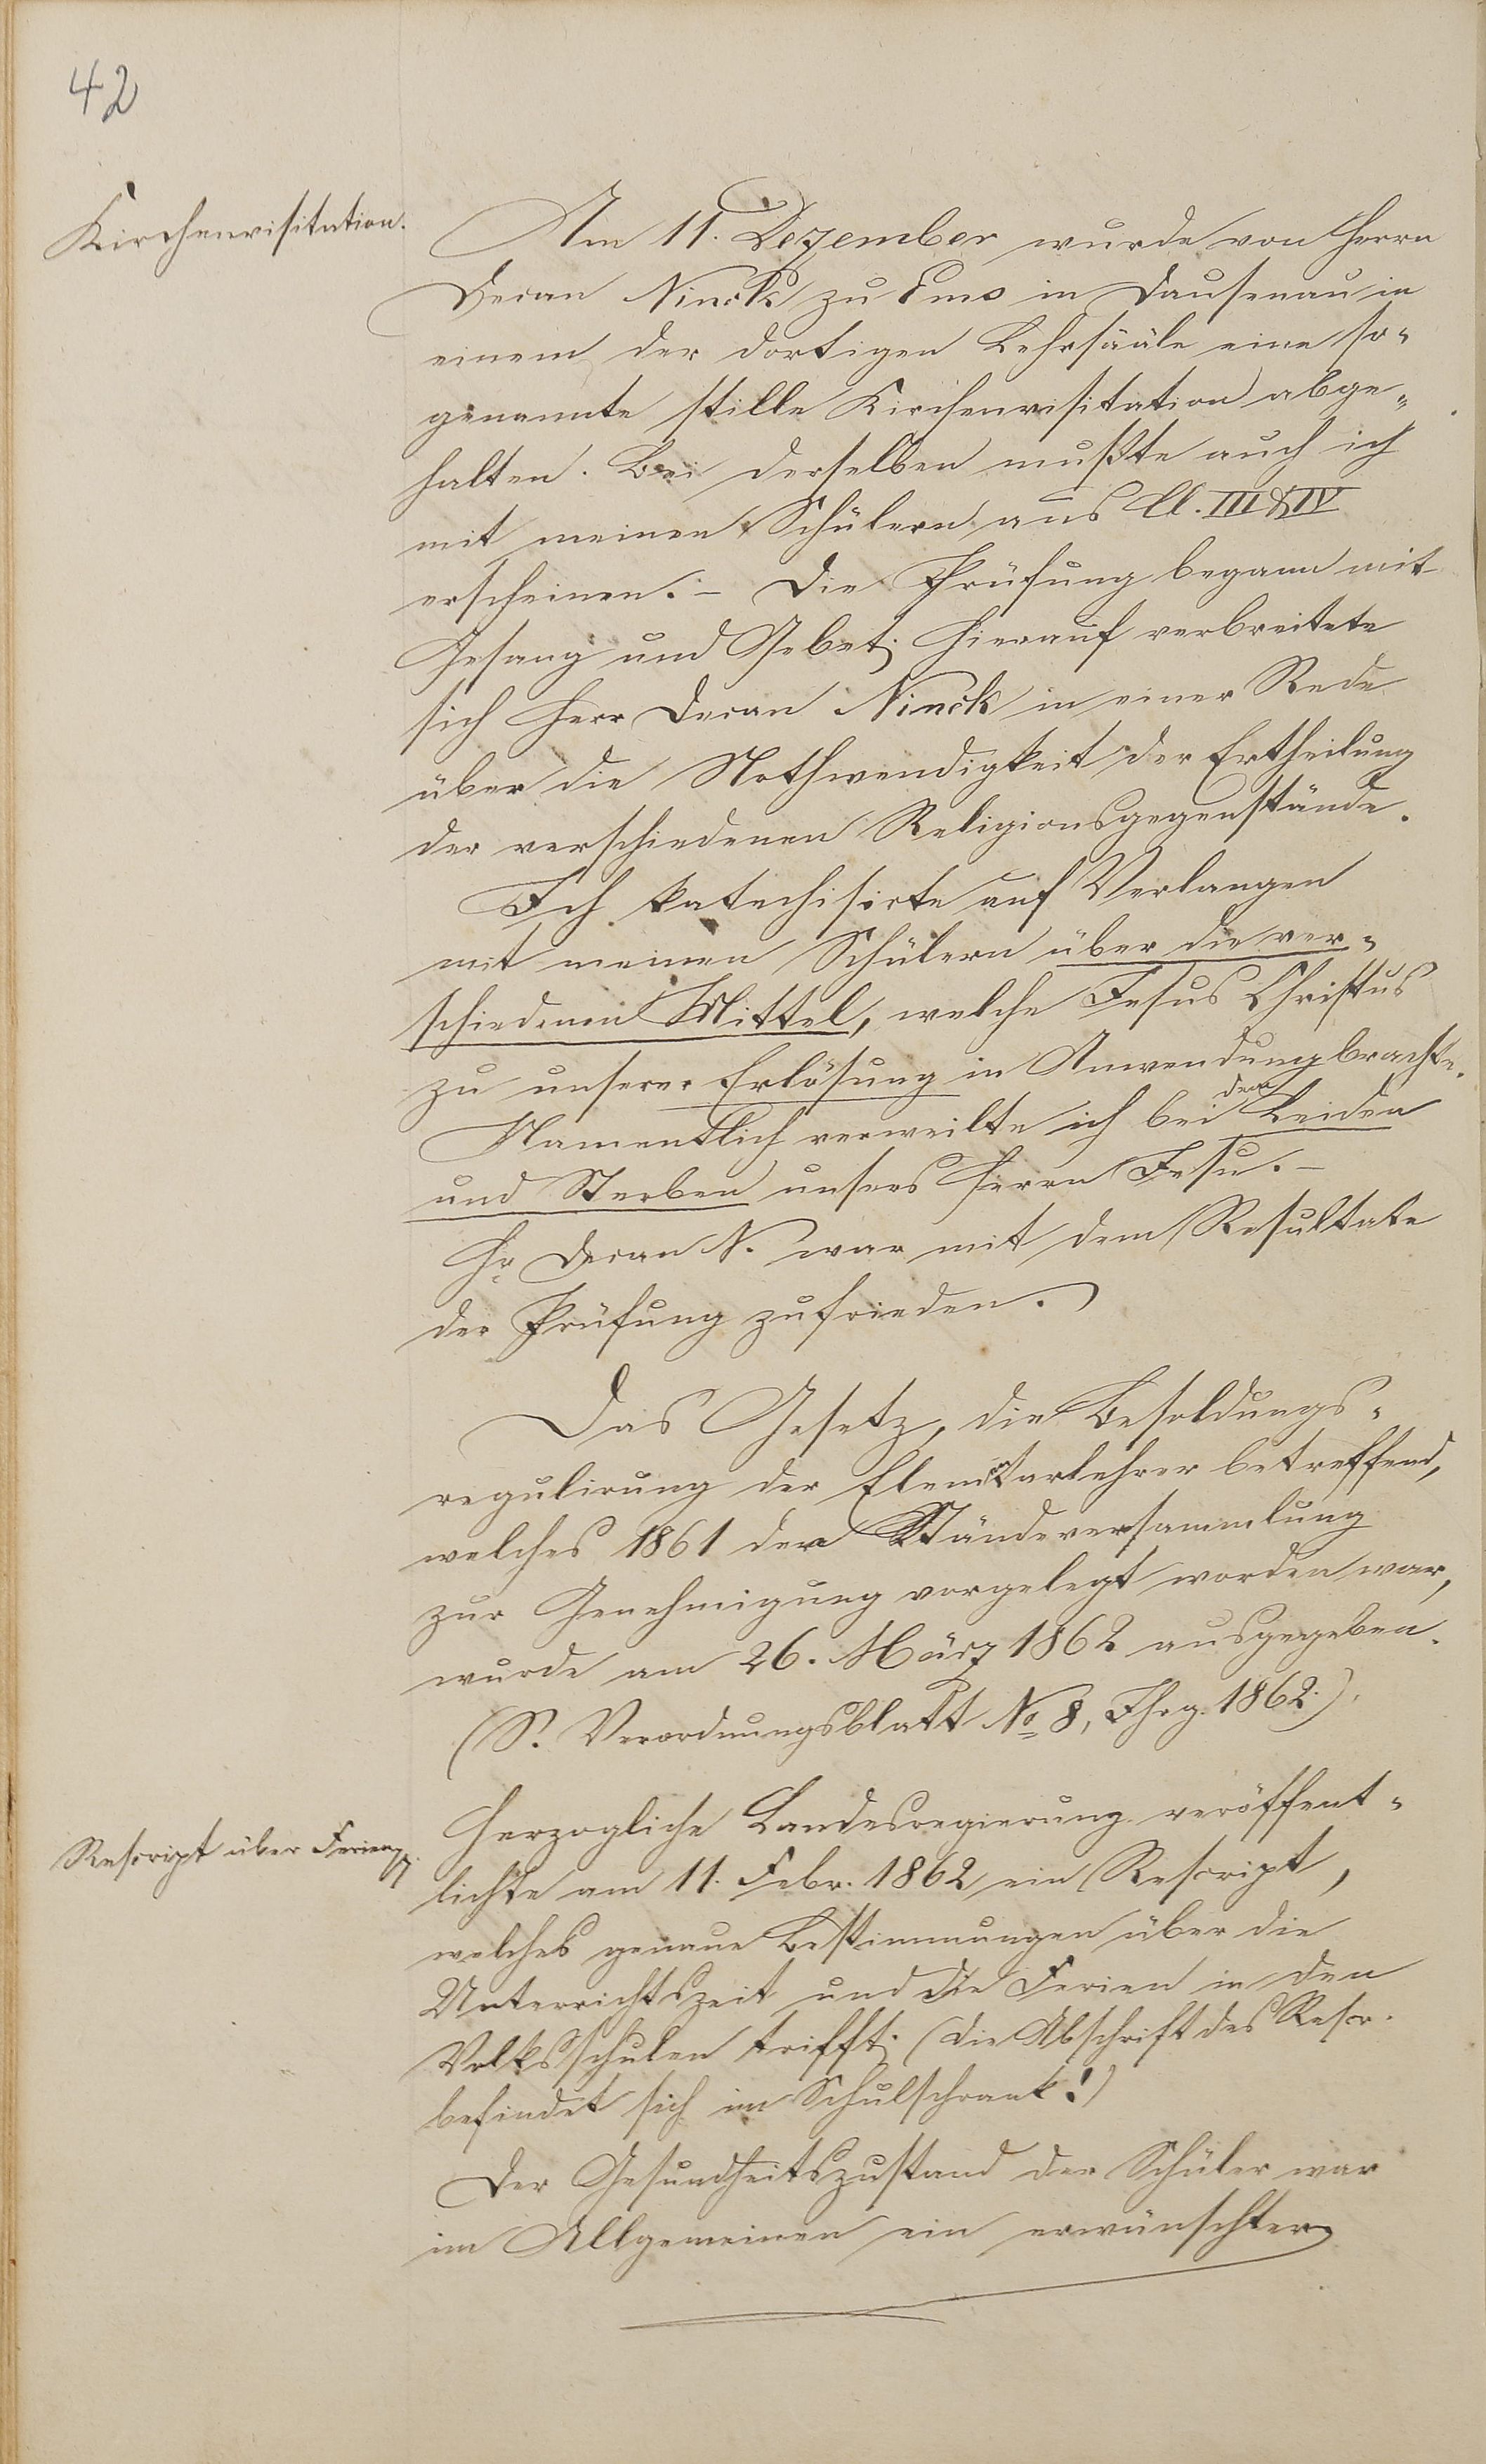 42
Kirchenvisitation.
Am 11. Dezember wurde von Herrn
Decan Ninck zu Ems in Dausenau in
einem der dortigen Lehrsääle eine so-
genannte stille Kirchenvisitation abge-
halten. Bei derselben mußte auch ich
mit meinen Schülern aus Cl. III & IV
erscheinen. – Die Prüfung begann mit
Gesang und Gebet. Hierauf verbreitete
sich Herr Decan Ninck in einer Rede
über die Nothwendigkeit der Ertheilung
der verschiedenen Religionsgegenstände.
Ich katechisirte auf Verlangen
mit meinen Schülern über die ver-
schiedenen Mittel, welche Jesus Christus
zu unserer Erlösung in Anwendung brachte.
Namentlich verweilte ich bei dem Leiden
und Sterben unsers Herrn Jesu. –
Hr. Decan N. war mit dem Resultate
der Prüfung zufrieden.
Das Gesetz, die Besoldungs-
regulirung der Elementarlehrer betreffend,
welches 1861 der Ständeversammlung
zur Genehmigung vorgelegt worden war,
wurde am 26. März 1862 ausgegeben.
(S. Verordnungsblatt No 8, Jhrg. 1862.)
Rescript über Ferien
Herzogliche Landesregierung veröffent-
lichte am 11. Febr. 1862 ein Rescript,
welches genaue Bestimmungen über die
Unterrichtszeit und die Ferien in den
Volksschulen trifft. (Die Abschrift des Rescr.
befindet sich im Schulschrank!)
Der Gesundheitszustand der Schüler war
im Allgemeinen ein erwünschter.